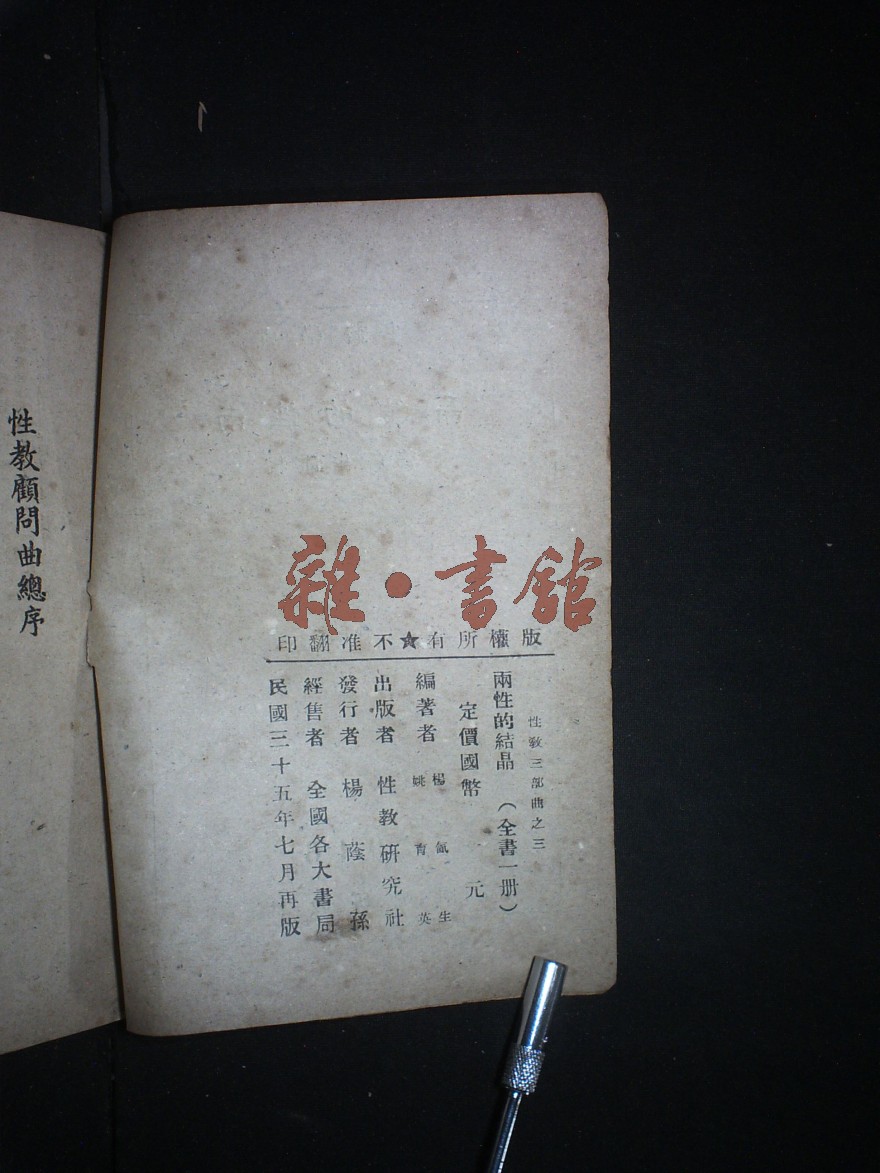 雜·書館
版權所有★不准翻印
性教三部曲之三
兩性的結晶（全書一册）
定價國幣 元
編著者 楊氤生 姚育英
出版者 性教研究社
發行者 楊蔭孫
經售者 全國各大書局
民國三十五年七月再版
性教顧問曲總序